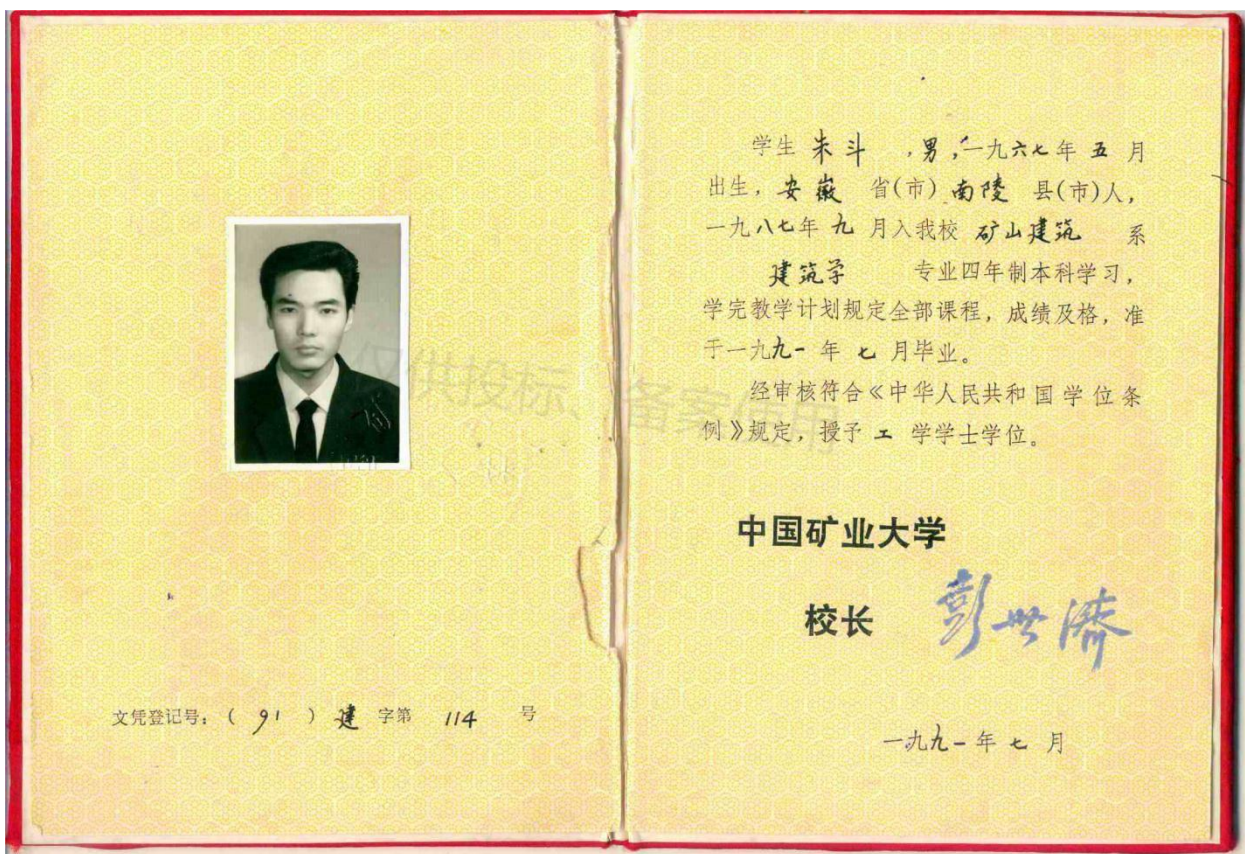 文凭登记号：（ 91 ） 建 字第 114 号
学生 朱斗 ，男，一九六七年 五 月
出生，安徽 省(市) 南陵 县(市)人，
一九八七年 九 月入我校 矿山建筑 系
建筑学 专业四年制本科学习，
学完教学计划规定全部课程，成绩及格，准
于一九九一 年 七 月毕业。
经审核符合《中华人民共和国学位条
例》规定，授予 工 学学士学位。
中国矿业大学
校长 彭世济
一九九一 年 七 月
仅供投标、备案使用